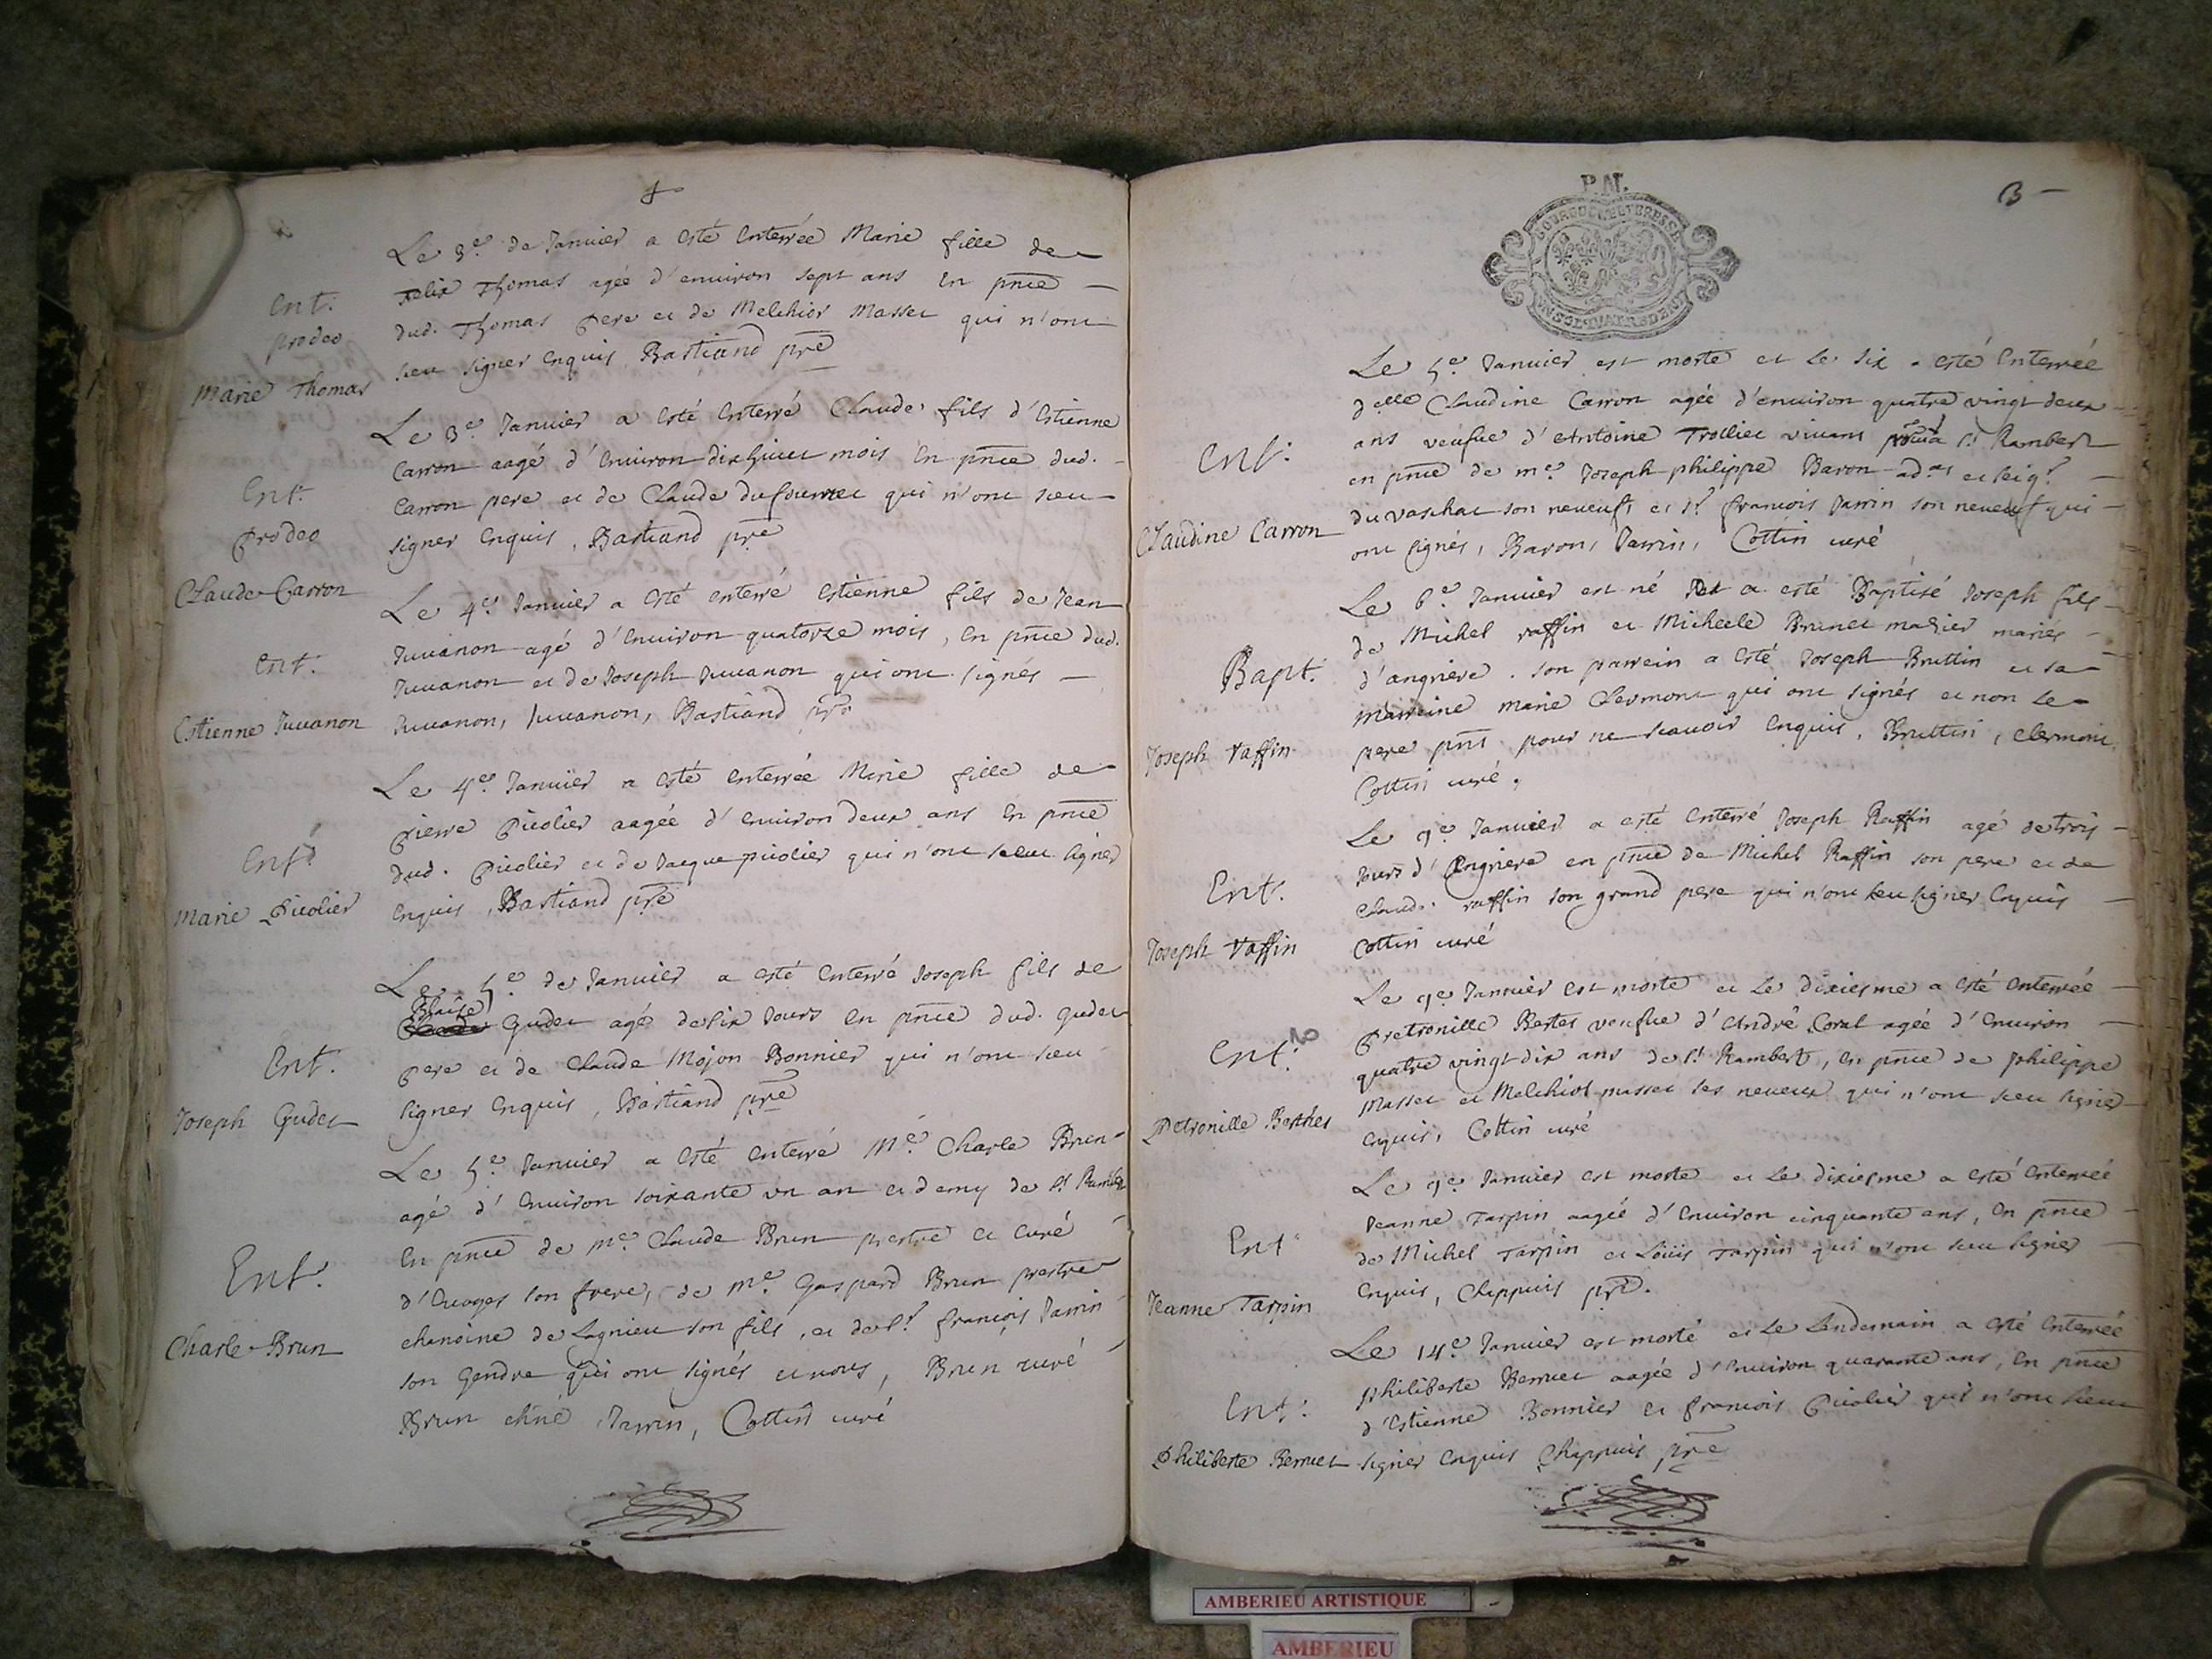 Ent.
prodeo
Marie Thomas
Le 3e. de Janvier a esté enterrée Marie fille de
Felix Thomas agée d'environ sept ans en pnce
dud. Thomas pere et de Melchior Masset qui n'ont
sceu signer enquis Bastiand pre
Ent.
prodeo
Claude Carron
Le 3e. Janvier a esté enterré Claude fils d'Estienne
Carron aagé d'environ dixhuict mois en pnce dud.
Carron pere et de Claude dufournet qui n'ont sceu
signer enquis, Bastiand pre
Ent.
Estienne Juvanon
Le 4e. Janvier a esté enterré Estienne fils de Jean
Juvanon agé d'environ quatorze mois, en pnce dud.
Juvanon et de Joseph Juvanon qui ont signés
Juvanon, Juvanon, Bastiand pre
Ent.
Marie Picolier
Le 4e. Janvier a esté enterrée Marie fille de
pierre Picolier aagée d'environ deux ans en pnce
dud. Picolier et de Jacque picolier qui n'ont sceu signer
enquis, Bastiand pre
Ent.
Joseph Gudet
Le 5e. de Janvier a esté enterré Joseph fils de
Blaise
Gudet agé de six Jours en pnce dud. Gudet
pere et de Claude Mojon Bonnier qui n'ont sceu
signer enquis, Bastiand pre
Ent.
Charle Brun
Le 5e. Janvier a esté enterré Me. Charle Brun
agé d'environ soixante un an et demy de St Rambert
en pnce de Me. Claude Brun prestre et curé
d'Evoges son frere, de Me. Gaspard Brun prestre
chanoine de Lagnieu son fils, et de Sr. françois Jarrin
son gendre qui ont signés et nous, Brun curé
Brun chne Jarrin, Cottin curé
P.N.
3
BOURGOGNE ET BRESSE
UN SOL QUATRE DEN
Ent.
Claudine Carron
Le 5e. Janvier est morte et le six a esté enterrée
delle Claudine Carron agée d'environ quatre vingt deux
ans veufve d'Antoine Trollier vivant à St. Rambert
en pnce de me. Joseph philippe Baron adat et seigr.
du vaschat son neveuf, et Sr. francois Jarrin son neveuf qui
ont signés, Baron, Jarrin, Cottin curé
Bapt.
Joseph raffin
Le 6e. Janvier est né et a esté Baptisé Joseph fils
de Michel raffin et Michele Brunet mariés
d'angriere. son parrein a esté Joseph Bruttin et sa
marreine marie Clermont qui ont signés et non le
pere pnt pour ne scavoir enquis, Bruttin, Clermont,
Cottin curé.
Ent.
Joseph raffin
Le 9e. Janvier a esté enterré Joseph Raffin agé de trois
Jours d'Angriere en pnce de Michel Raffin son pere et de
Claude raffin son grand pere qui n'ont sceu signer enquis
Cottin curé
Ent.
Petronille Berthet
Le 9e Janvier est morte et le dixiesme a esté enterrée
Pretronille Bertet veufve d'André Coral agée d'environ
quatre vingt dix ans de St Rambert, en pnce de philippe
Masset et Melchiol masset ses neveux qui n'ont sceu signer
enquis, Cottin curé
Ent
Jeanne Tarpin
Le 9e. Janvier est morte et le dixiesme a esté enterrée
Jeanne Tarpin aagée d'environ cinquante ans, en pnce
de Michel Tarpin et Loüis Tarpin qui n'ont sceu signer
enquis, Chappuis pre.
Ent.
Philiberte Berruet
Le 14e. Janvier est morte et le Lendemain a esté enterrée
philiberte Berruet aagée d'environ quarante ans, en pnce
d'Estienne Bonnier et francois Picolier qui n'ont sceu
signer enquis Chappuis pre
AMBERIEU ARTISTIQUE
AMBERIEU